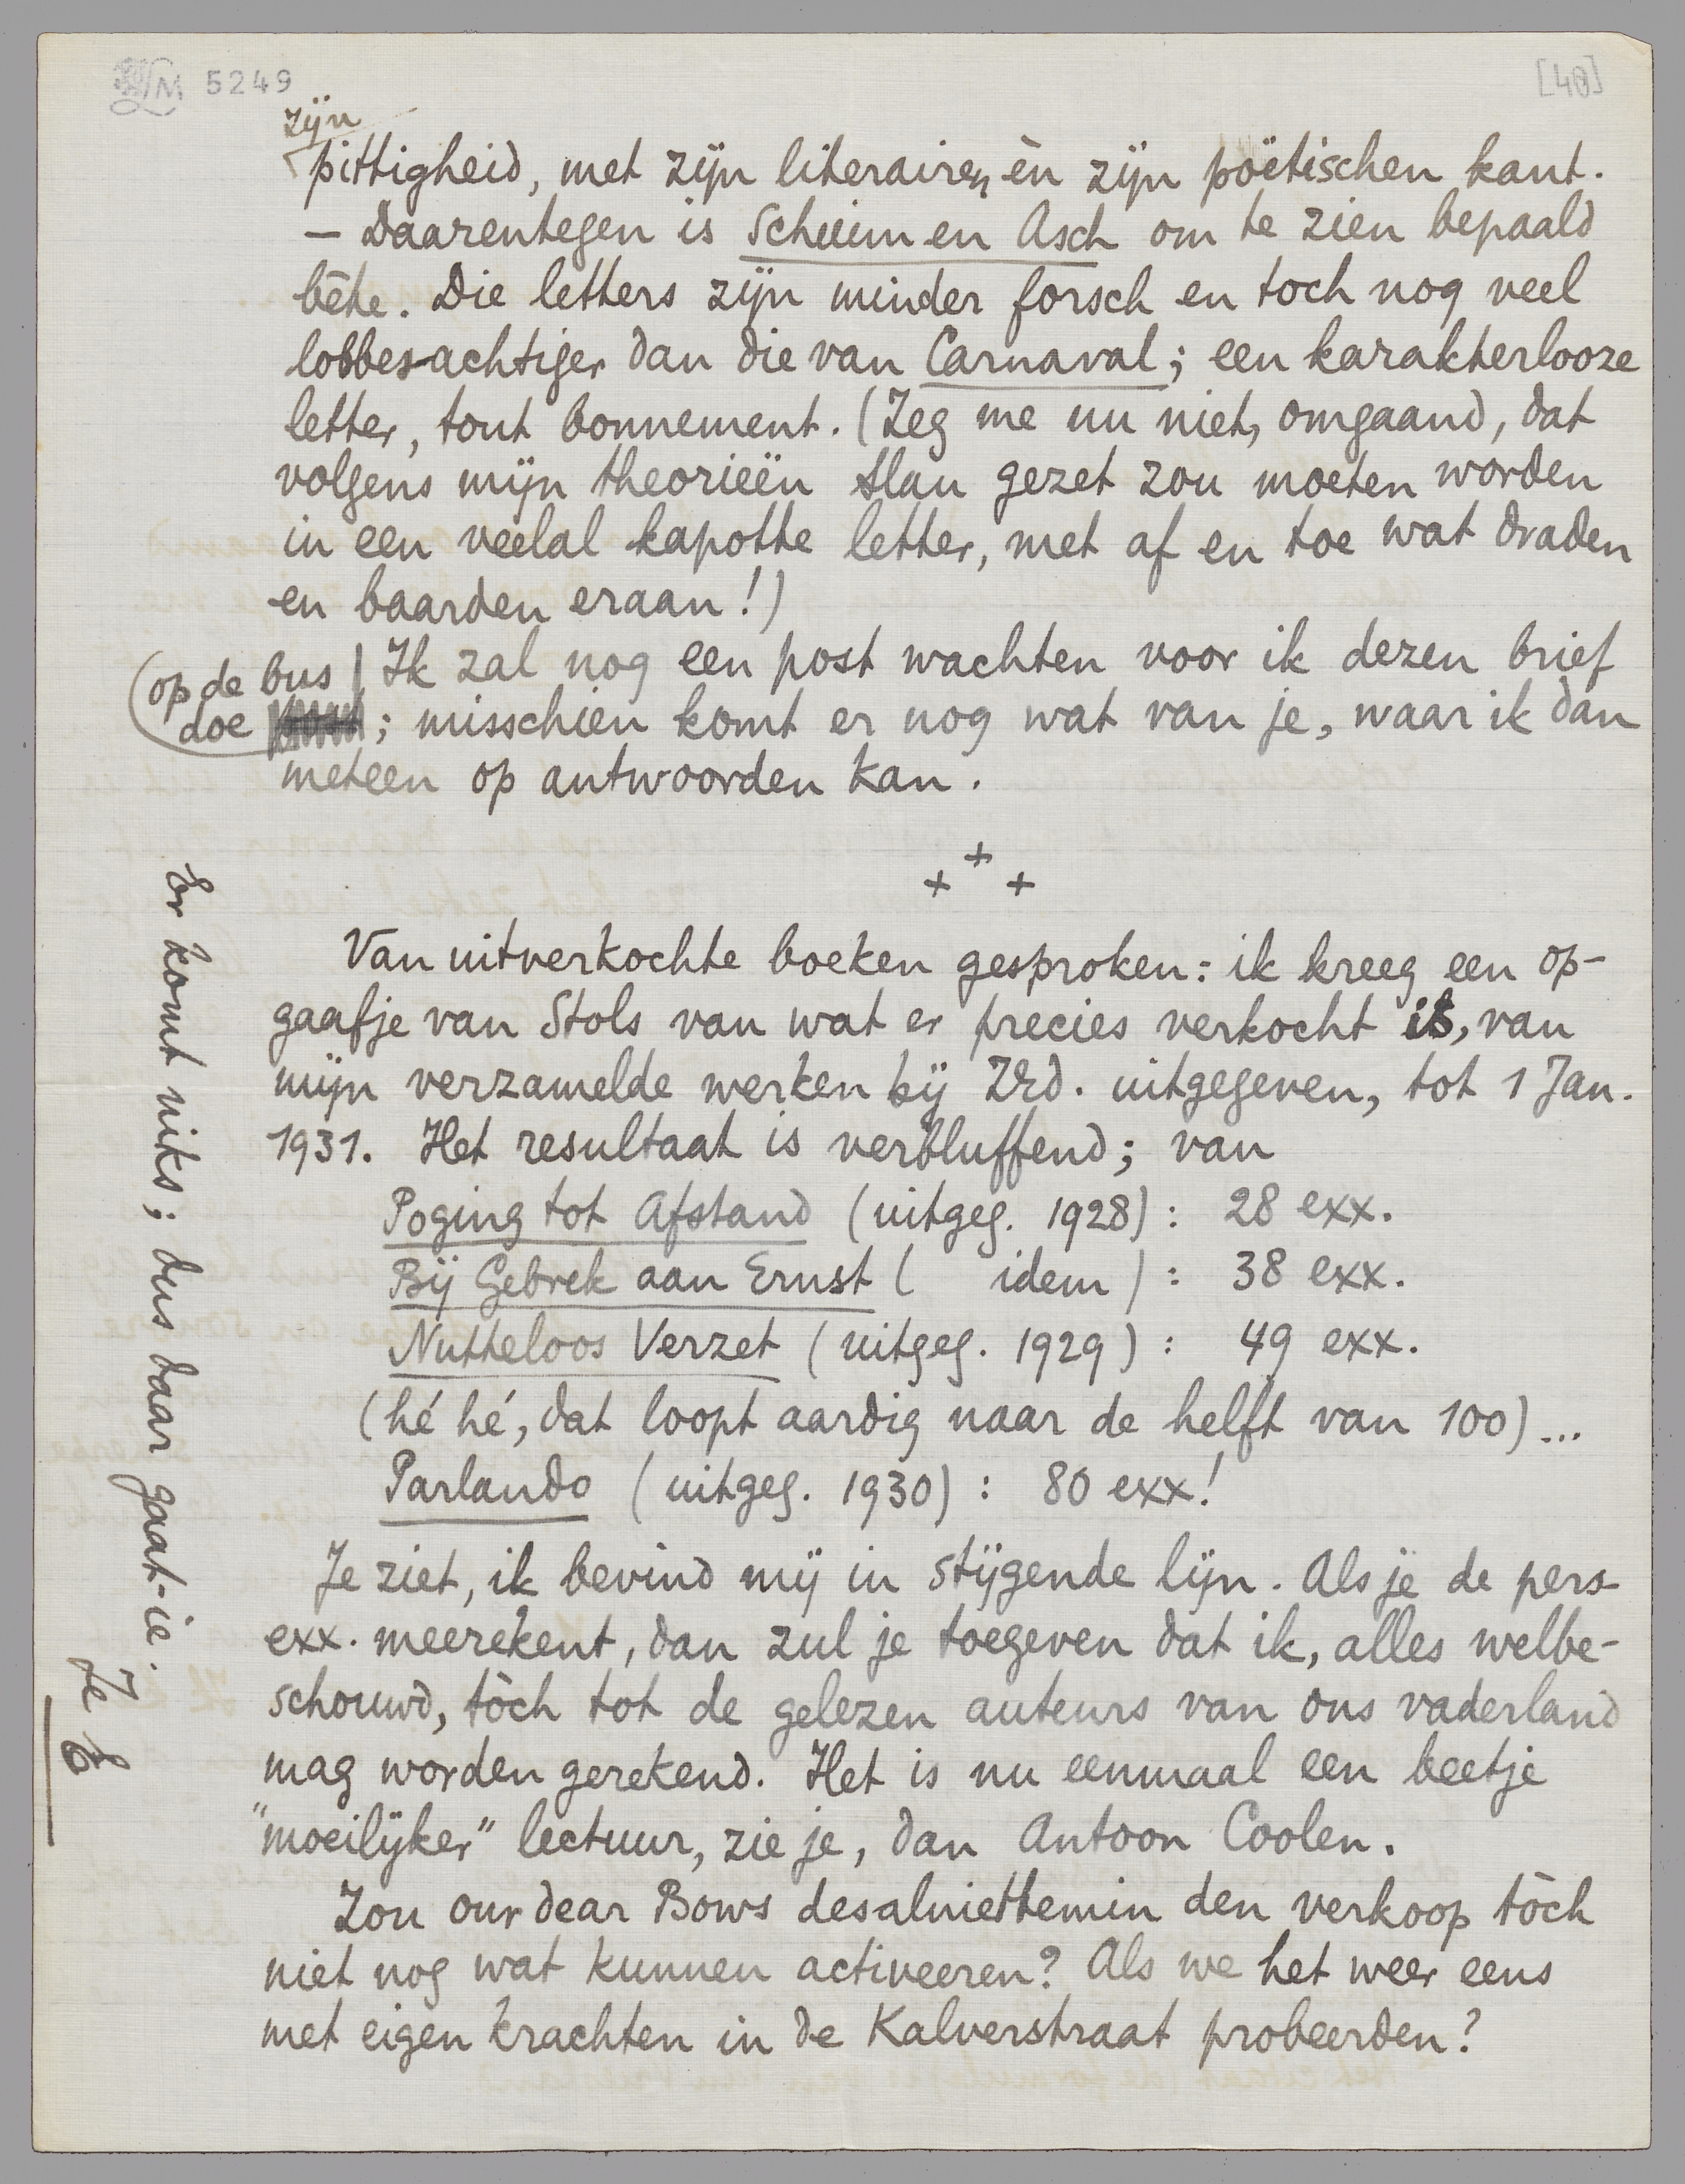 5249
[40]
zijn
pittigheid, met zijn literairen èn zijn poëtischen kant.
— Daarentegen is Schuim en Asch om te zien bepaald
bête. Die letters zijn minder forsch en toch nog veel
lobbesachtiger dan die van Carnaval; een karakterlooze
letter, tout bonnement. (Zeg me nu niet, omgaand, dat
volgens mijn theorieën Slau gezet zou moeten worden
in een veelal kapotte letter, met af en toe wat draden
en baarden eraan!)
Ik zal nog een post wachten voor ik dezen brief
(op de bus
doe ; misschien komt er nog wat van je, waar ik dan
meteen op antwoorden kan.
+ + +
Van uitverkochte boeken gesproken: ik kreeg een op-
gaafje van Stols van wat er precies verkocht is, van
mijn verzamelde werken bij Zrd. uitgegeven, tot 1 Jan.
1931. Het resultaat is verbluffend; van
Poging tot Afstand (uitgeg. 1928): 28 exx.
Bij Gebrek aan Ernst ( idem ) : 38 exx.
Nutteloos Verzet (uitgeg. 1929) : 49 exx.
(hé hé, dat loopt aardig naar de helft van 100)...
Parlando (uitgeg. 1930) : 80 exx!
Je ziet, ik bevind mij in stijgende lijn. Als je de pers-
exx. meerekent, dan zul je toegeven dat ik, alles welbe-
schouwd, tòch tot de gelezen auteurs van ons vaderland
mag worden gerekend. Het is nu eenmaal een beetje
"moeilijker" lectuur, zie je, dan Antoon Coolen.
Zou our dear Bows desalniettemin den verkoop tòch
niet nog wat kunnen activeeren? Als we het weer eens
met eigen krachten in de Kalverstraat probeerden?
Er komt niks; dus daar gaat-ie.
Je E